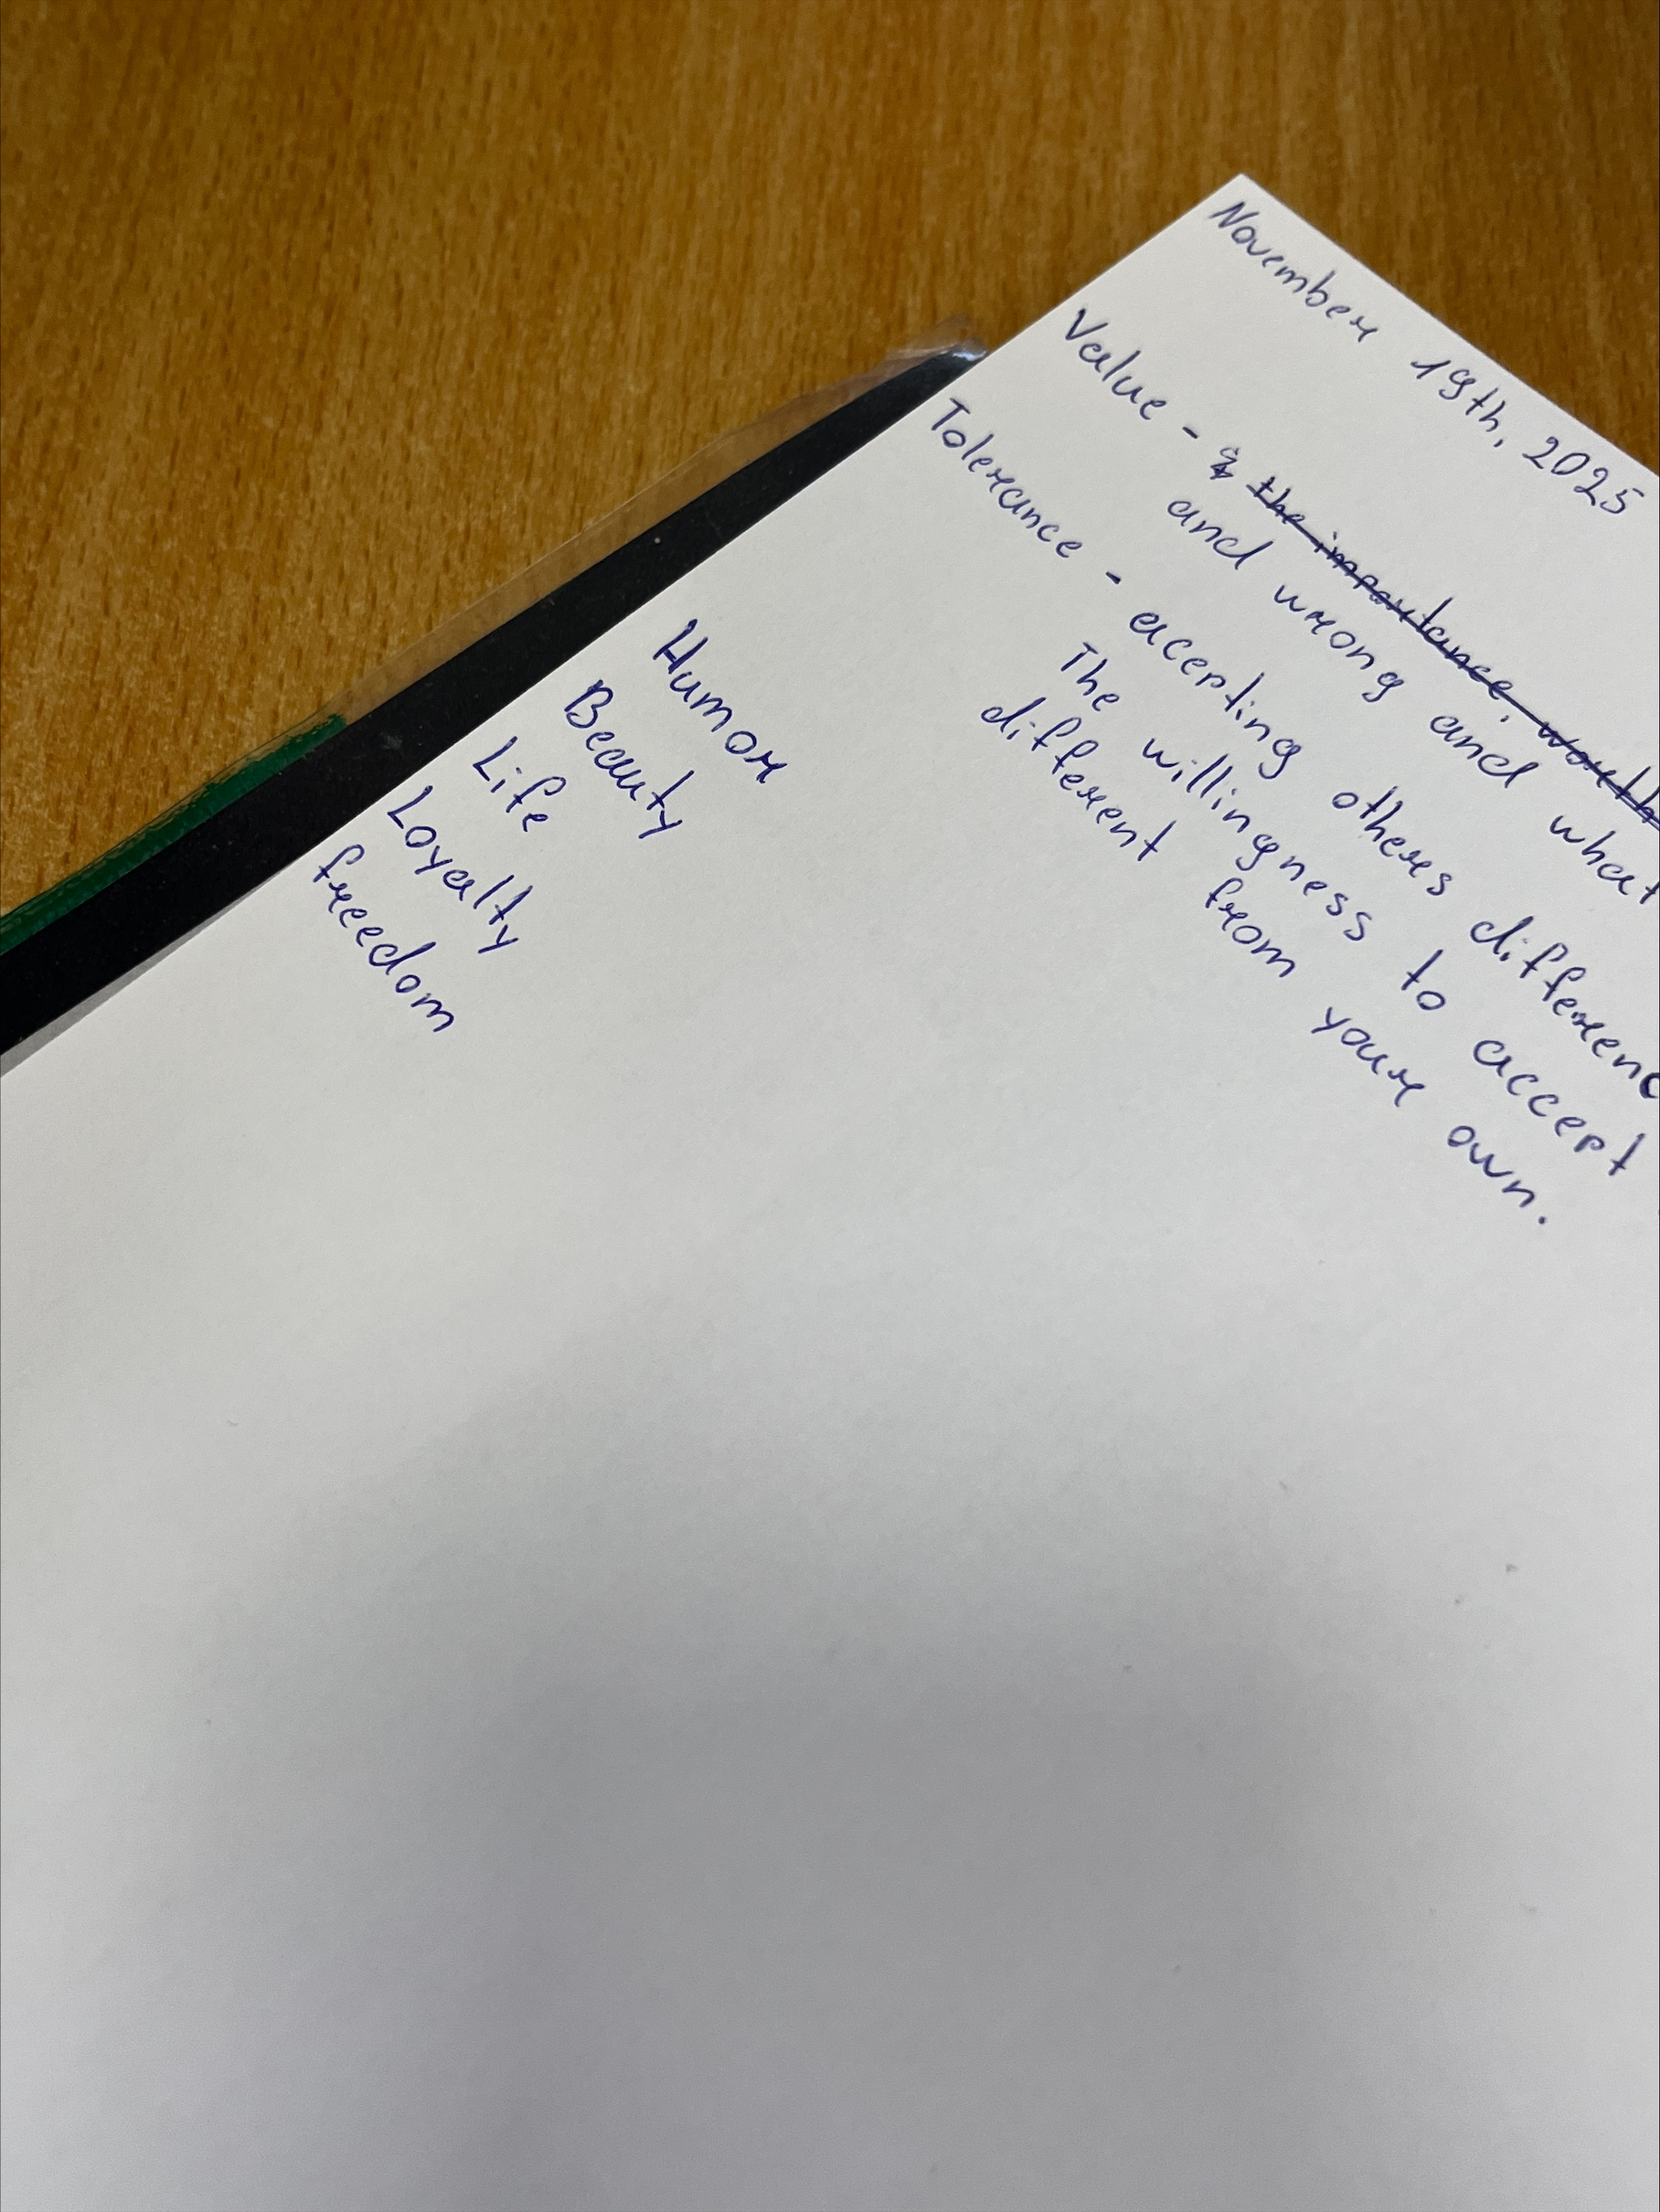 November 19th, 2025
Value - the importance, worth
and wrong and what
Tolerance - accepting others differenc
The willingness to accept
different from your own.
Humor
Beauty
Life
Loyalty
freedom